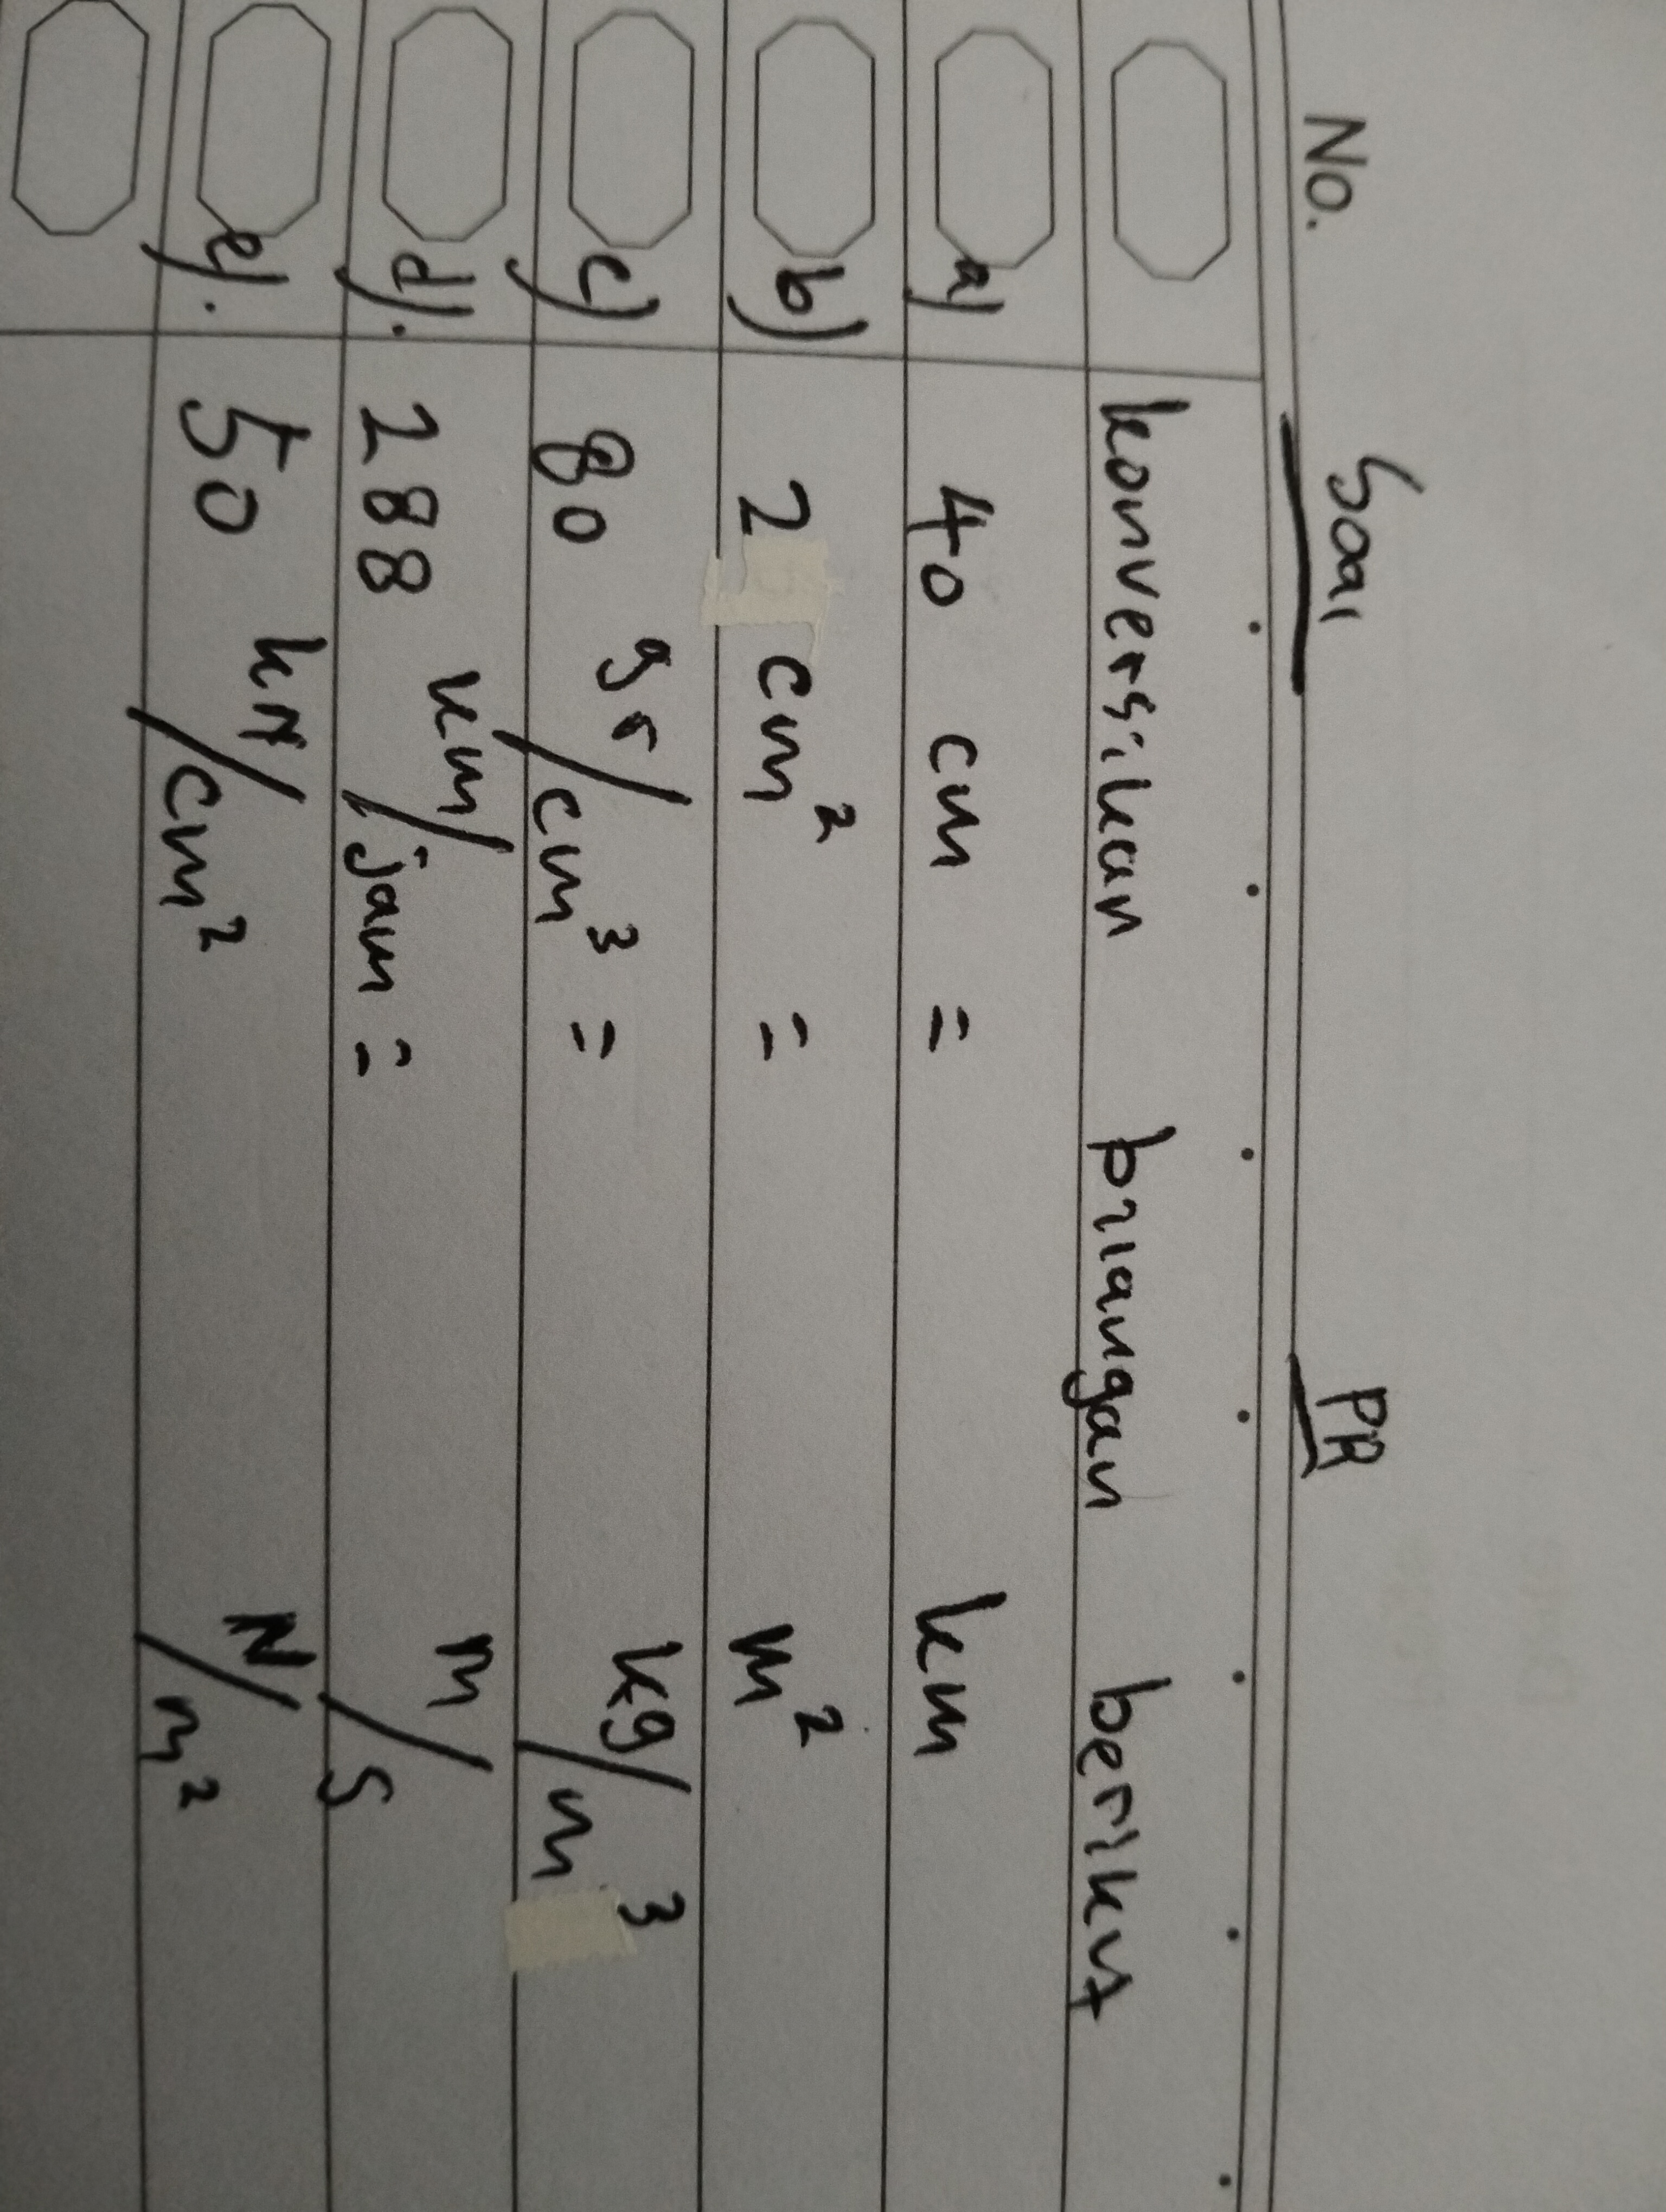 No. Soal PR
konversikan bilangan berikut
a) 40 cm = km
b) 2 cm² = m²
c) 80 gr/cm³ = kg/m³
d). 288 km/jam = m/s
e). 50 kN/cm² N/m²